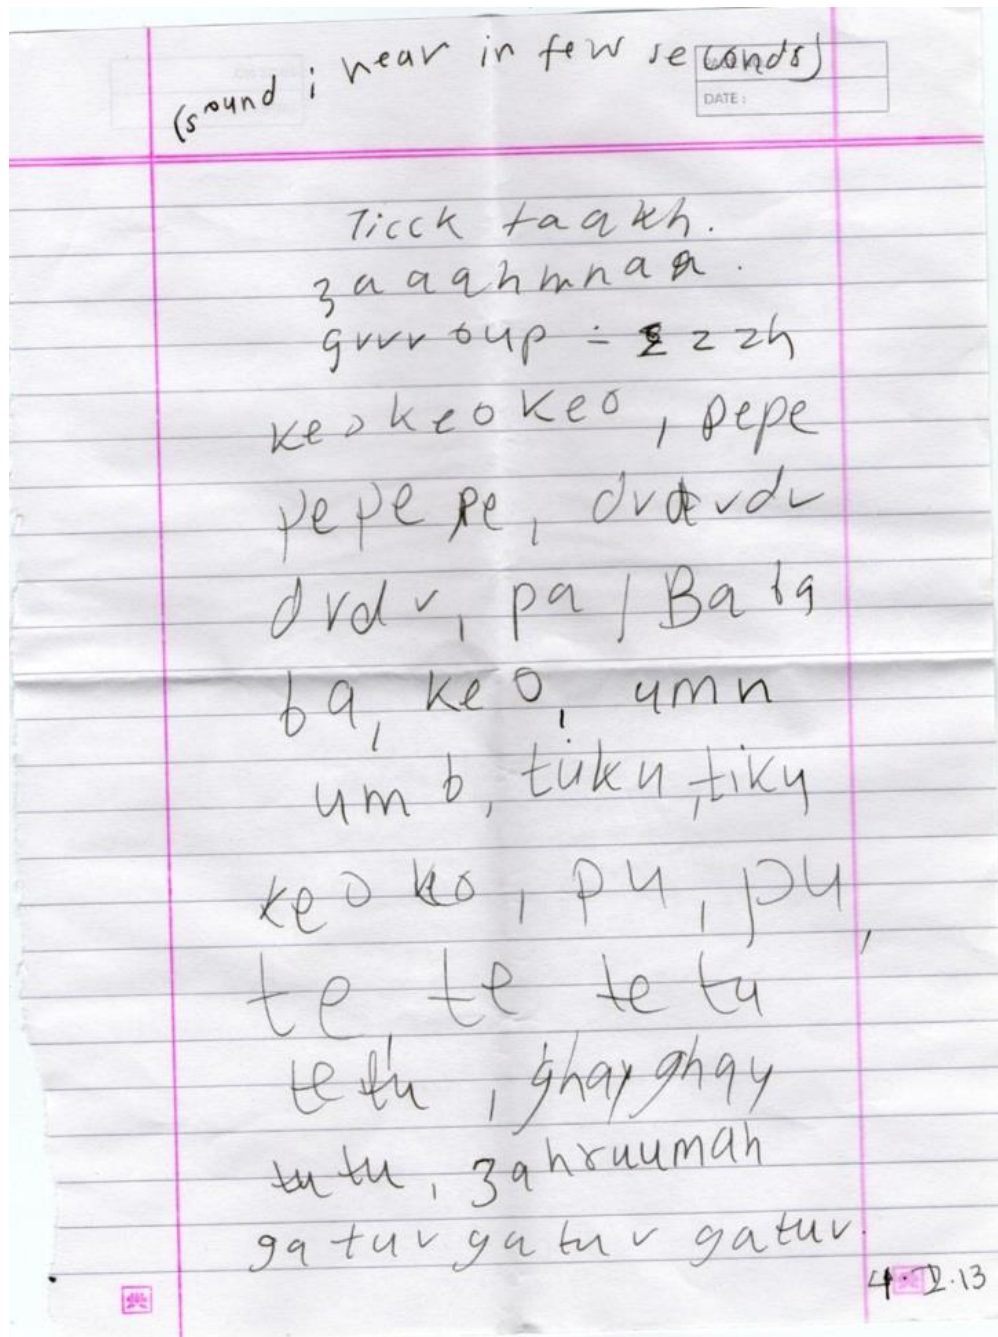 (sound i hear in few seconds)
DATE:
Ticck taakh.
zaaahmnaa.
grrroup - zzzh
keokeokeo, pepe
pepepe, drdrdr
drdr, pa / Baba
ba, keo, umn
umb, tuku, tiku
keoko, pu, pu,
te, te te tu
tetu, ghayghay
tutu, zahruumah
gaturgaturgatur.